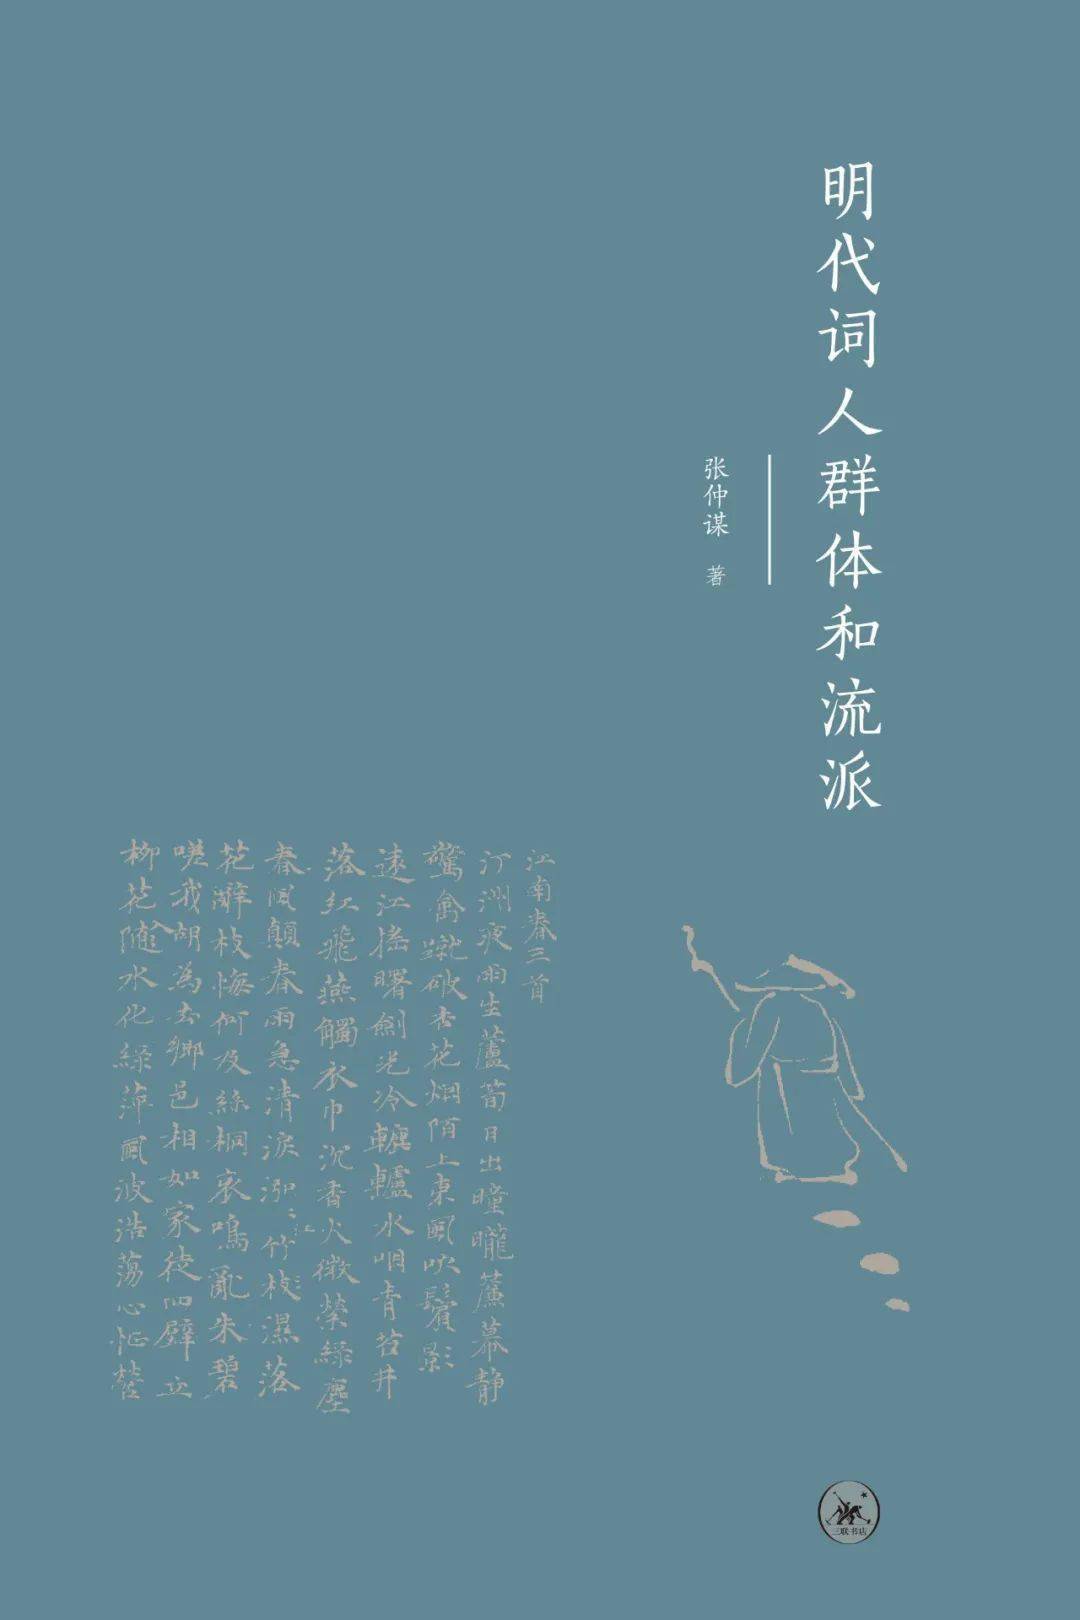 明代词人群体和流派
张仲谋 著
江南春三首
汀洲夜雨生蘆筍日出曈曨簾幕靜
驚禽蹴破杏花烟陌上東風吹鬢影
遠江搖曙劍光冷轆轤水咽青苔井
落紅飛燕觸衣巾沉香火微縈綠塵
春風顛春雨急清淚泓〻竹枝濕落
花辭枝悔何及絲桐哀鳴亂朱碧
嗟我胡為去鄉邑相如家徒四壁立
柳花隨水化綠萍風波浩蕩心怔營
三联书店